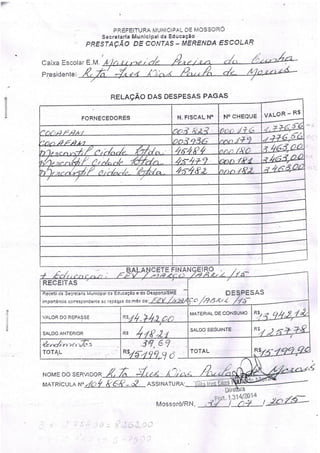 PREFEITURA MUNICIPAL DE MOSSORÓ
Secretaria Municipal da Educação
PRESTAÇÃO DE CONTAS – MERENDA ESCOLAR
Caixa Escolar E.M. Pereira da Cunha
Presidente: Rita Ires Dias Paula de Morais
RELAÇÃO DAS DESPESAS PAGAS
FORNECEDORES N. FISCAL Nº Nº CHEQUE VALOR – R$
COOAFAM 003823 000176 1.776,56
COOAFAM 003936 000179 1.776,56
Mercantil Cidade Ltda 45484 000180 3.463,00
Mercantil Cidade Ltda 45479 000181 3.463,00
Mercantil Cidade Ltda 45482 000182 3.463,00
BALANCETE FINANCEIRO
+ Educação: FEV/MARÇO/ABRIL/15
RECEITAS DESPESAS
Receita da Secretaria Municipal da Educação e do Desporto/SME
importância correspondente ao repasse do mês de FEV/MARÇO/ABRIL/15
VALOR DO REPASSE R$ 14.742,00 MATERIAL DE CONSUMO R$ 13.942,12
SALDO ANTERIOR R$ 418,21 SALDO SEGUINTE R$ 1.257,78
Rendimentos 39,69
TOTAL R$ 15.199,90 TOTAL R$ 15.199,90
NOME DO SERVIDOR: Rita Ires Dias Paula de Morais
MATRÍCULA Nº ASSINATURA:
Diretora
Port. 1.314/2014
Mossoró/RN, 31/07/2015